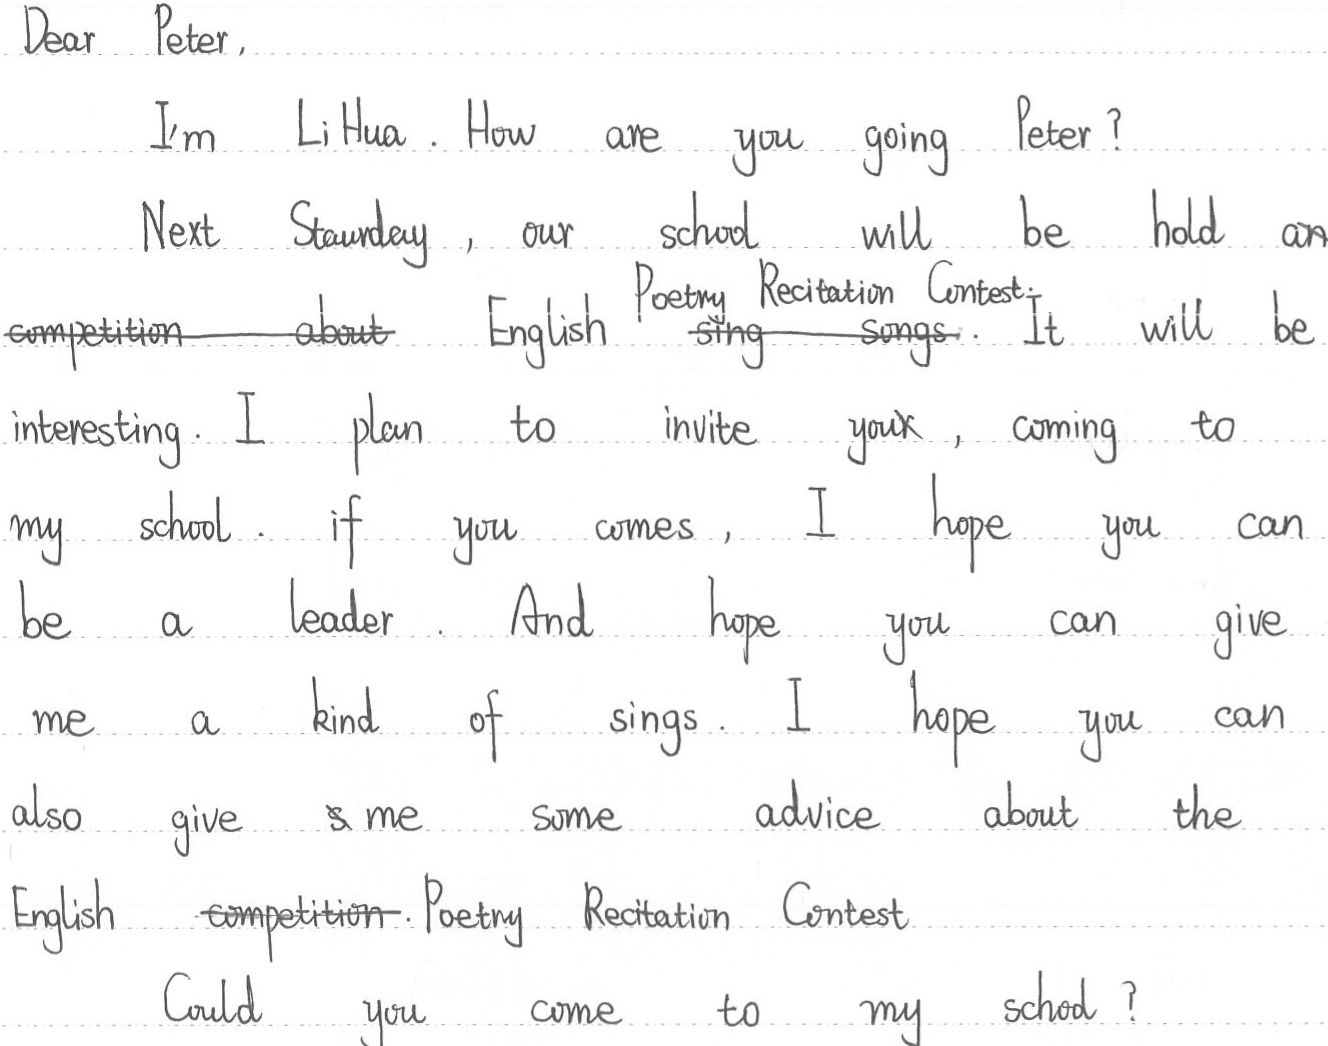 Dear Peter,
I'm Li Hua. How are you going Peter?
Next Staurday, our school will be hold an
Poetry Recitation Contest.
competition about English sing songs. It will be
interesting. I plan to invite you, coming to
my school. if you comes, I hope you can
be a leader. And hope you can give
me a kind of sings. I hope you can
also give me some advice about the
English competition. Poetry Recitation Contest
Could you come to my school?